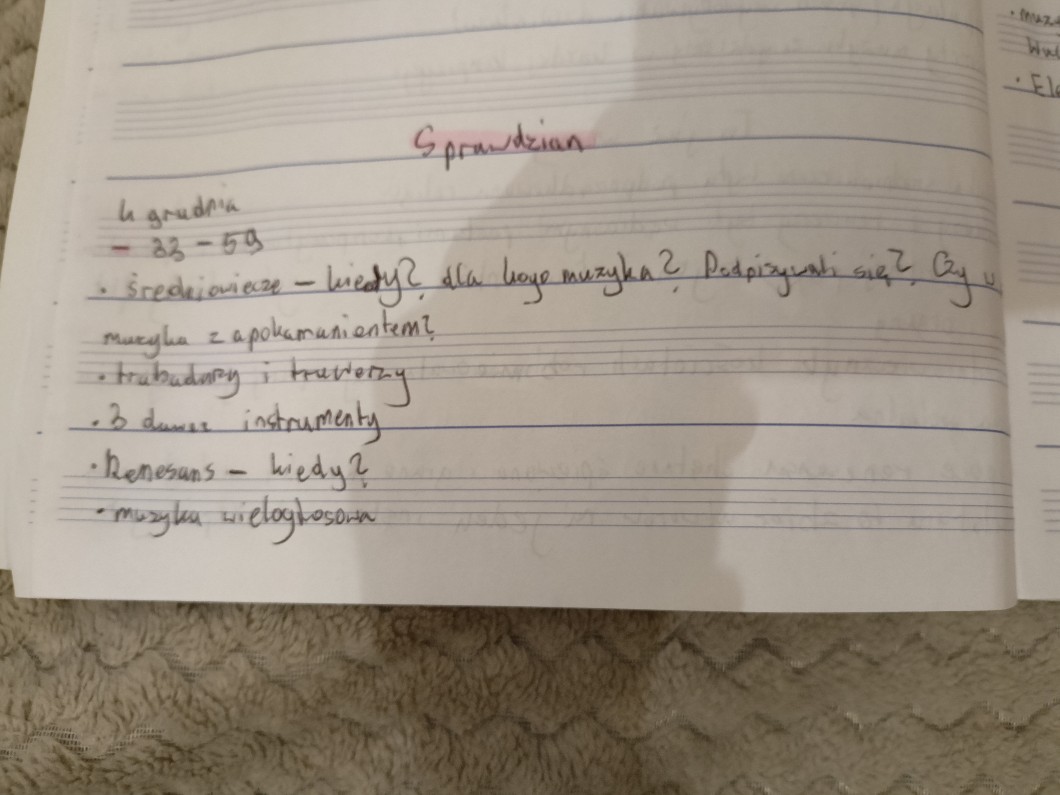 Sprawdzian
4 grudnia
- 33 - 59
• średniowiecze - kiedy? dla kogo muzyka? Podpisywali się? Czy
muzyka z apokamanientem?
• trubadurzy i truwerzy
• 3 dawne instrumenty
• Renesans - kiedy?
• muzyka wielogłosowa
• muz
• Ele